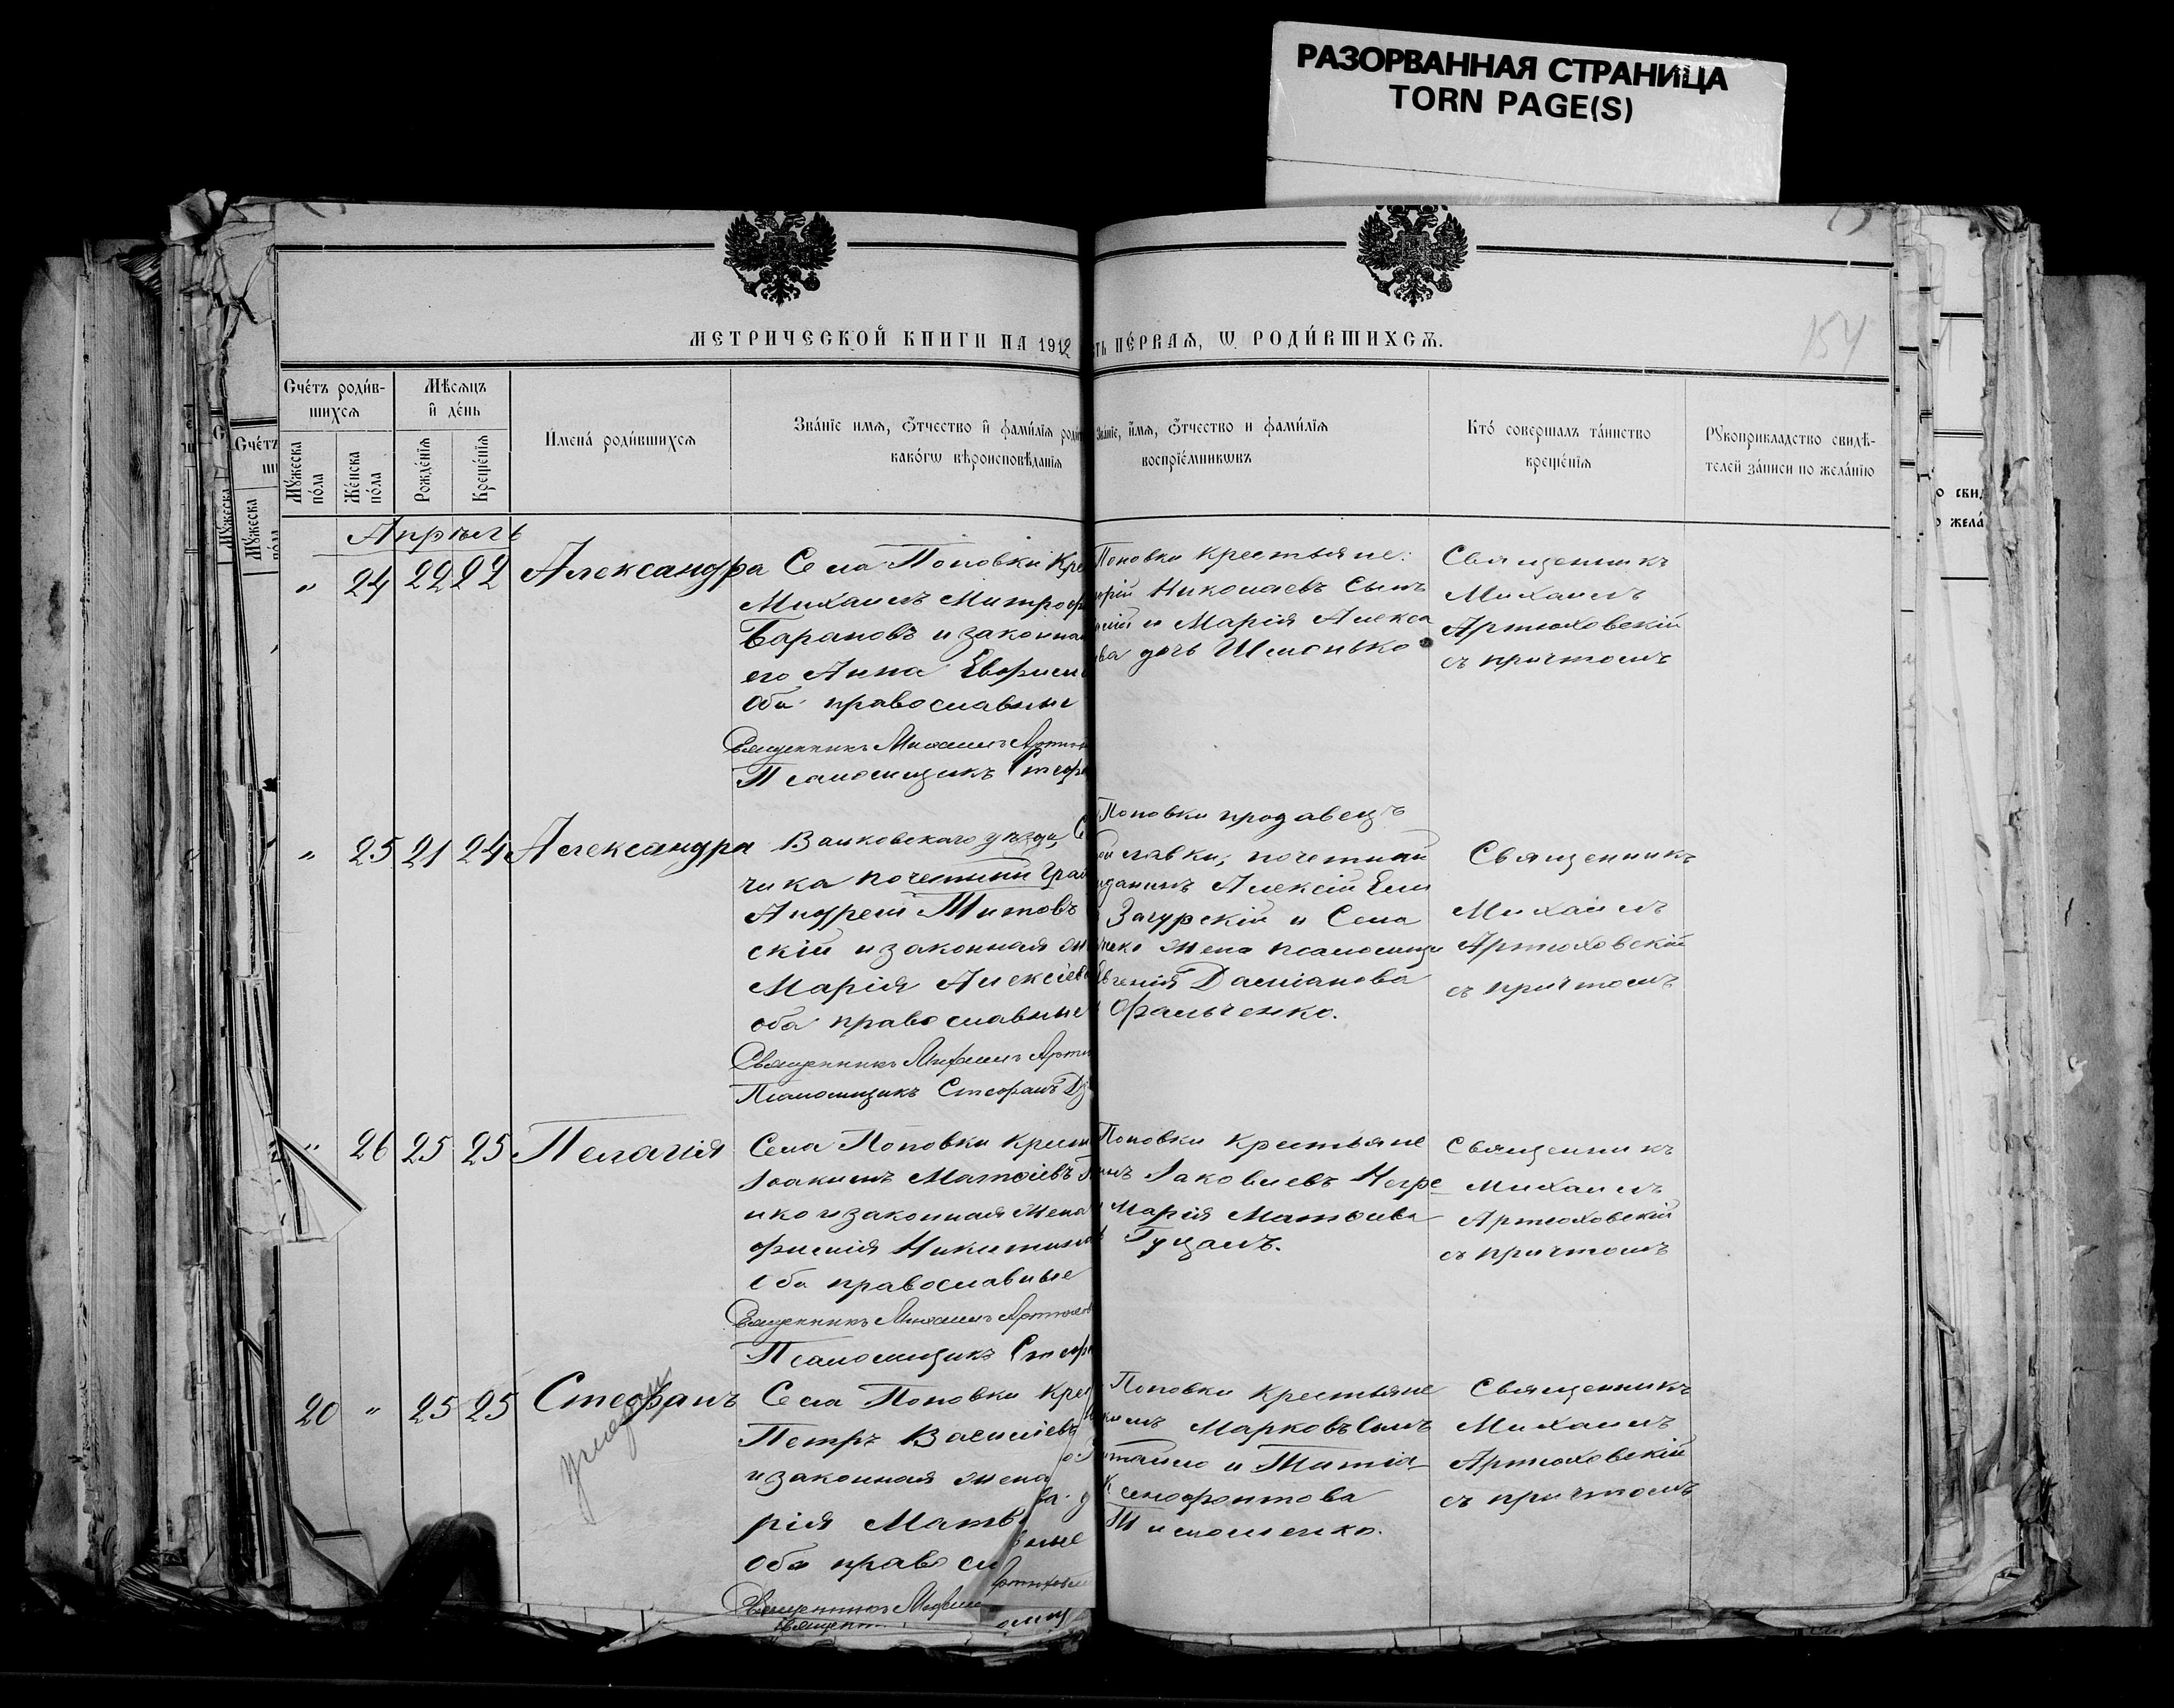 РАЗОРВАННАЯ СТРАНИЦА
TORN PAGE(S)
МЕТРИЧЕСКОЙ КНИГИ НА 1912
ПЕ́РВАѦ, Ѡ РОДИ́ВШИХСѦ.
154
Сче́тъ роди́в-
шихсѧ
Мѣсѧцъ
и҆ де́нь
Мꙋ́жеска
по́ла
Же́нска
по́ла
Рожде́нїѧ
Креще́нїѧ
Имена́ роди́вшихсѧ
Зва́нїе имѧ, ѻ҆́тчество и҆ фами́лїѧ
како́гѡ вѣроисповѣ́данїѧ
Зва́нїе, и҆́мѧ, ѻ҆́тчество и фами́лїѧ
воспрїе́мникѡвъ
Кто́ соверша́лъ та́инство
креще́нїѧ
Рꙋкоприкла́дство свидѣ́-
телей за́писи по жела́нїю
Апрѣль
" 24 22 22 Александра
Села Поповки Кре
Михаилъ Митроф
Барановъ и законная
его Анна
Оба православные
Священникъ Михаилъ Артю
Псаломщикъ Стефа
Поповки крестьяне:
Николаевъ Сынъ
и Марія Алекса
дочь Шмонько
Священникъ
Михаилъ
Артюховскій
съ причтомъ
" 25 21 24 Александра
Валковскаго уѣзда, С
чика почетный Граж
Андрей Титовъ
скій и законная
Марія Алексіева
оба православные
Священникъ Михаилъ Артю
Псаломщикъ Стефанъ
Поповки продавецъ
лавки, почетный
Алексій
Загурскій и Села
жена псаломщи
Даміанова
Фальченко.
Священникъ
Михаилъ
Артюховскій
съ причтомъ
" 26 25 25 Пелагія
Села Поповки Крест
Іоакимъ Матѳіевъ
нко и законная жена
фимія Никитина
Оба православные
Священникъ Михаилъ Артюхов
Псаломщикъ Стефа
Поповки Крестьяне
Іаковлевъ Негре
Марія Матѳіева
Гуцалъ.
Священникъ
Михаилъ
Артюховскій
съ причтомъ
20 " 25 25 Стефанъ
умеръ
Села Поповки Кре
Петръ Василіевъ
и законная жена
рія Матв
Оба правосл
Священникъ Михаил
Поповки Крестьяне
Марковъ Сынъ
и Татіа
Ксенофонтова
Тимошенко.
Священникъ
Михаилъ
Артюховскій
съ причтомъ